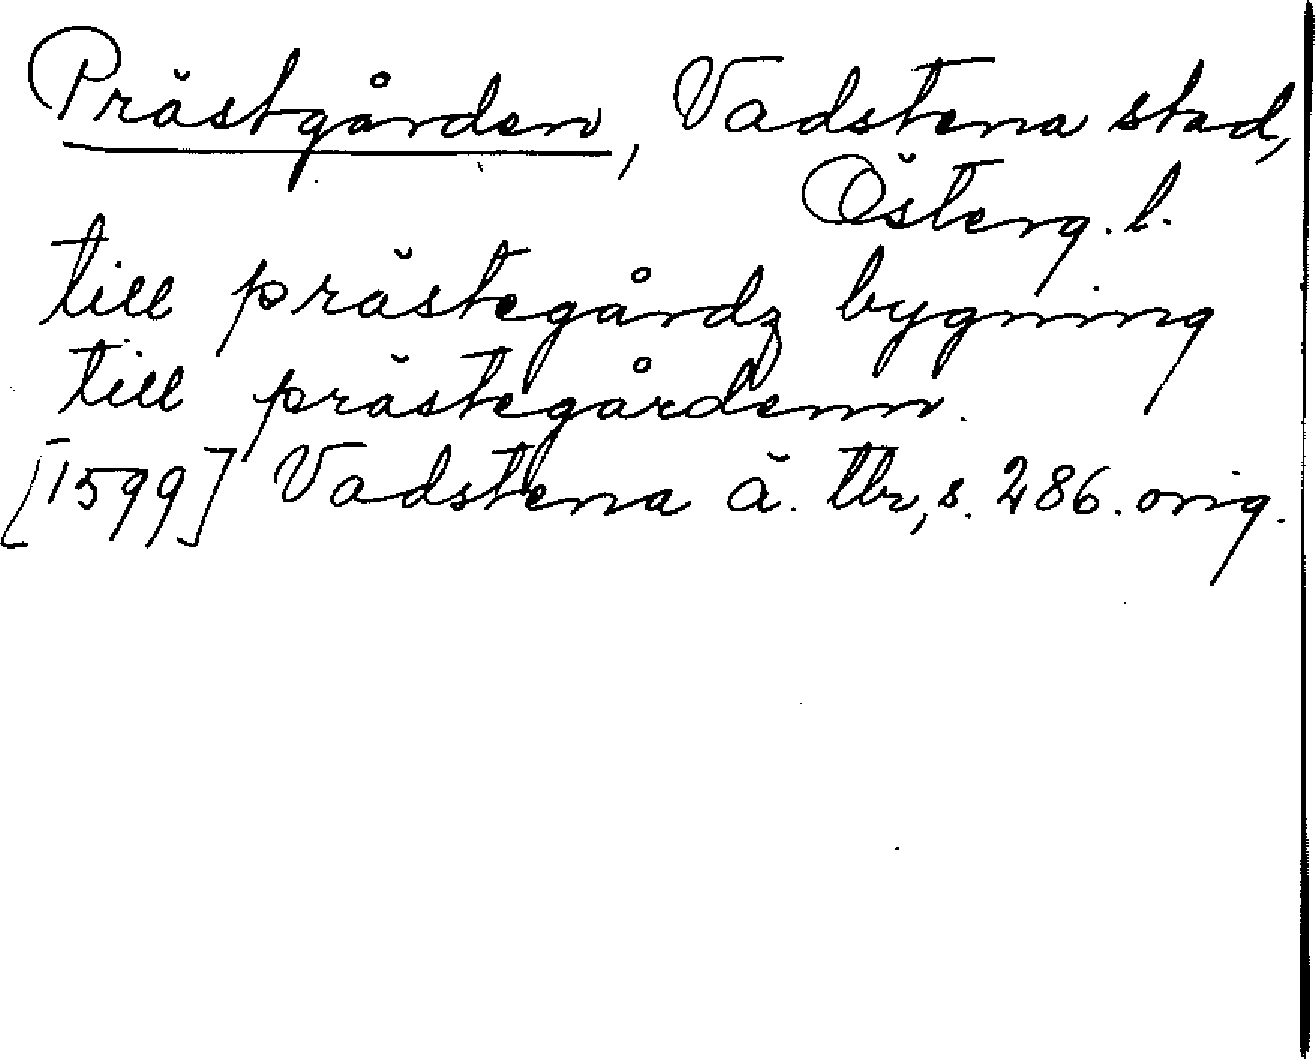 Prästgården, Vadstena stad,
Österg. l.
till prästegårdz bygning
till prästegårdenn.
[1599] Vadstena ä. tbr, s. 286. orig.